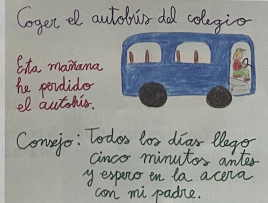 Coger el autobús del colegio
Esta mañana
he perdido
el autobús.
Consejo: Todos los días llego
cinco minutos antes
y espero en la acera
con mi padre.